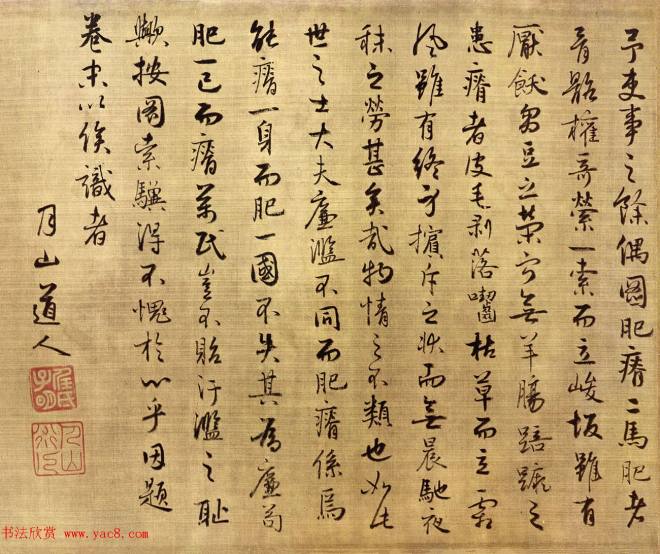 予吏事之餘偶圖肥瘠二馬肥者
骨骼權奇縈一索而立峻坂雖有
厭飫芻豆之榮寧無羊腸踣蹶之
患瘠者皮毛剝落嚙枯草而立霜
風雖有終身擯斥之狀而無晨馳夜
秣之勞甚矣哉物情之不類也如此
世之士大夫廉濫不同而肥瘠係焉
能瘠一身而肥一國不失其為廉苟
肥一己而瘠萬民豈不貽汙濫之恥
歟按圖索驥得不愧於心乎因題
卷末以俟識者
月山道人
任氏子明
月山道人
书法欣赏 www.yac8.com